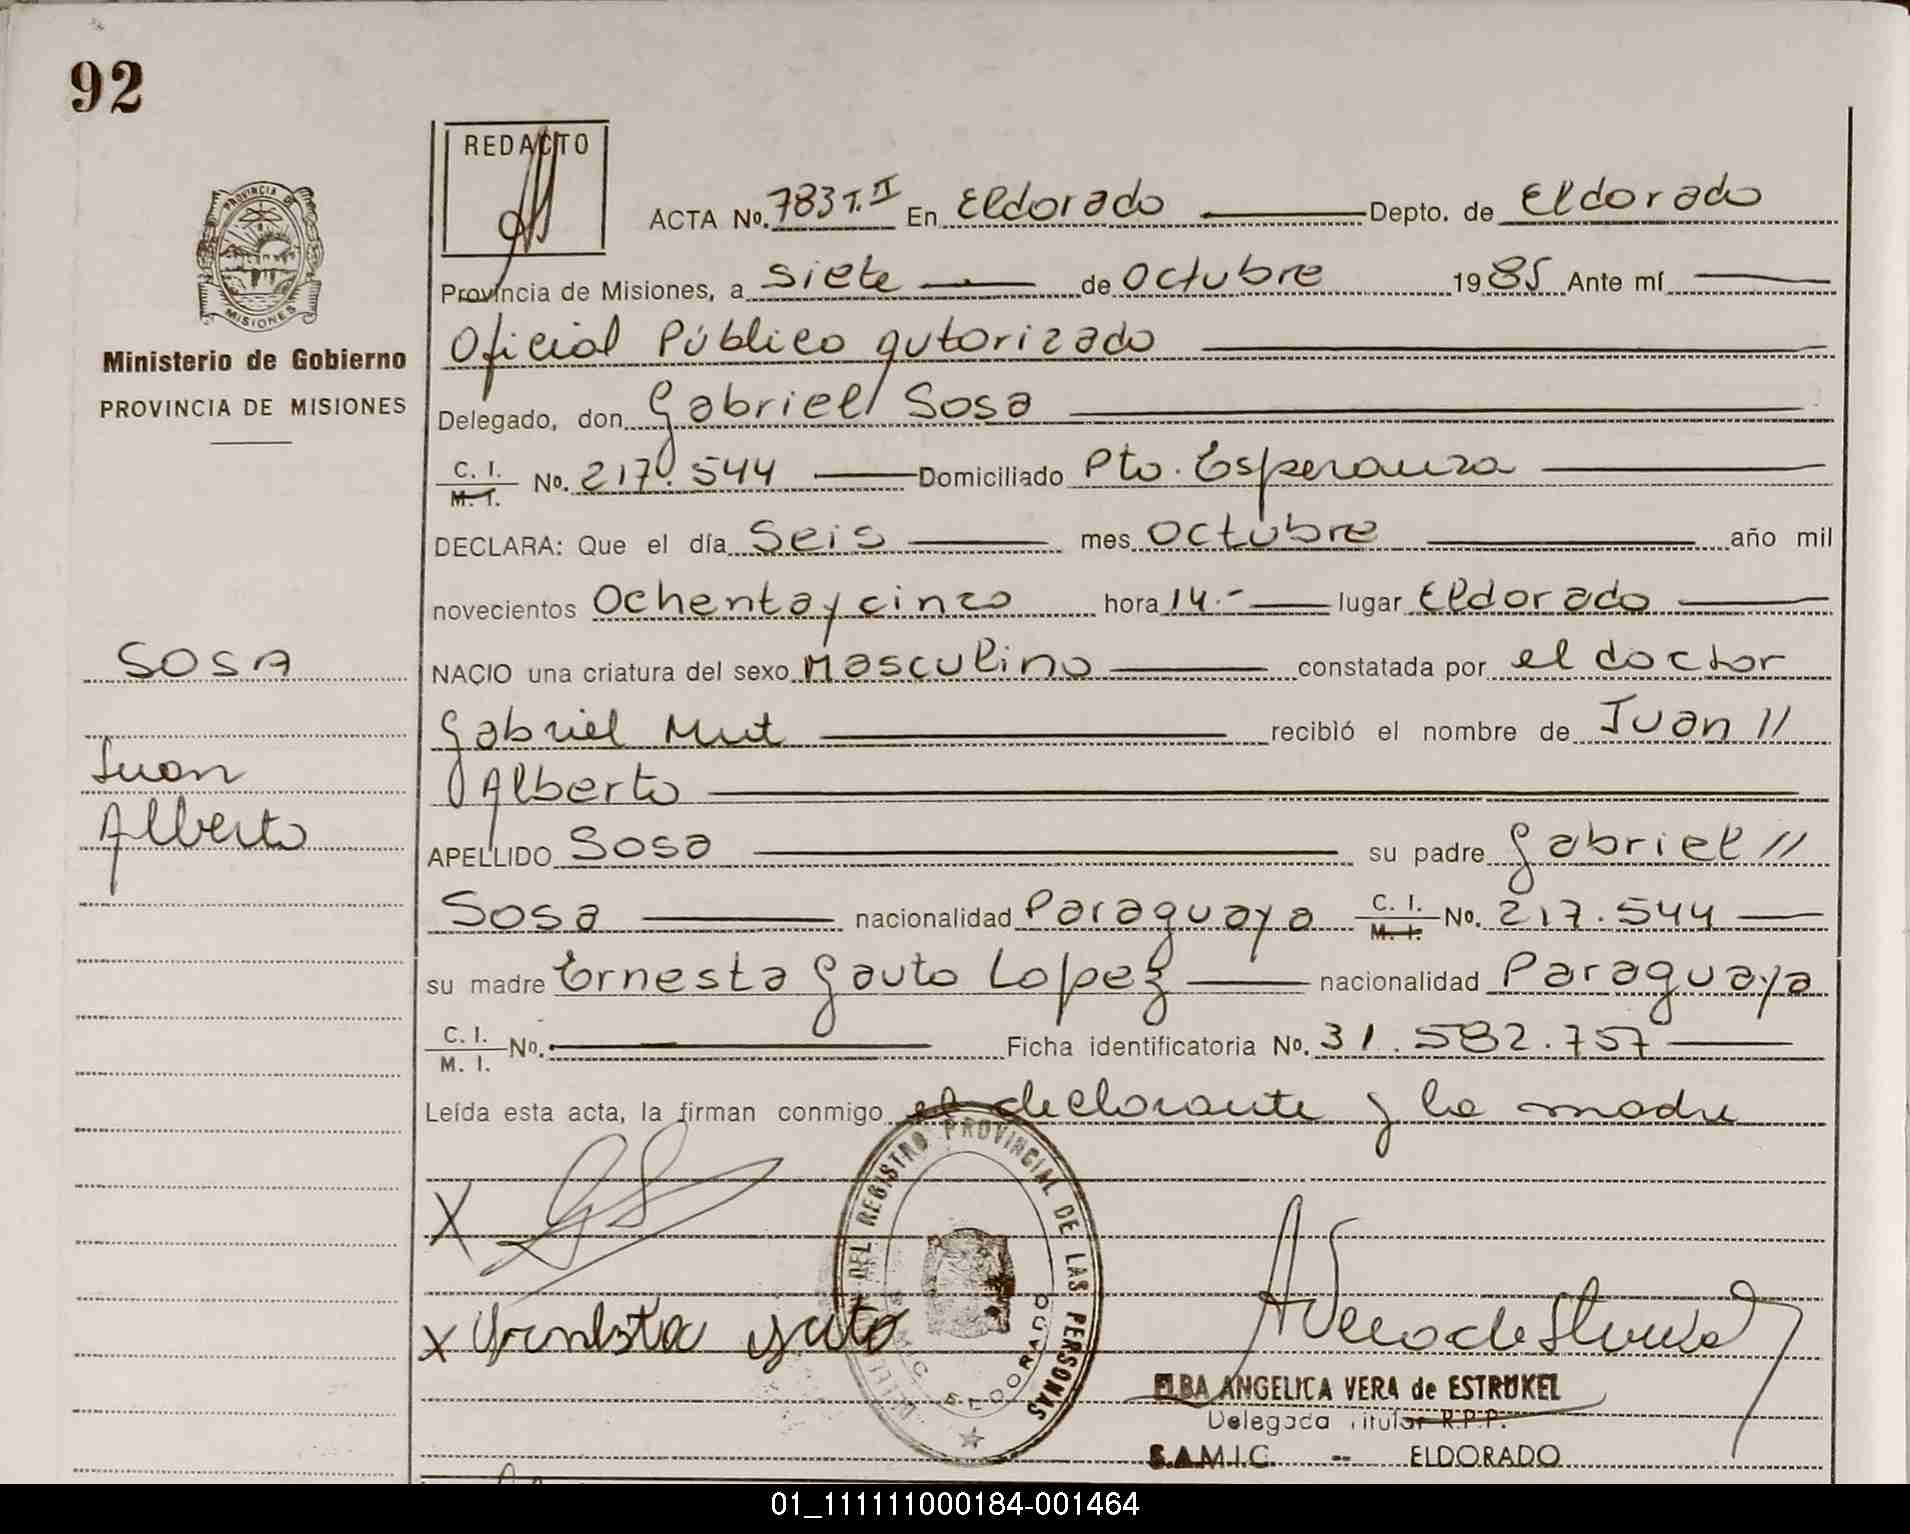 92
REDACTO
ACTA No. 783 T. II En Eldorado Depto. de Eldorado
PROVINCIA DE MISIONES
Provincia de Misiones, a siete de Octubre 1985 Ante mí
Oficial Público autorizado
Ministerio de Gobierno
PROVINCIA DE MISIONES
Delegado, don Gabriel Sosa
C. I. M. I. No. 217.544 Domiciliado Pto. Esperanza
DECLARA: Que el día Seis mes Octubre año mil
novecientos Ochenta y cinco hora 14.- lugar Eldorado
SOSA
NACIO una criatura del sexo Masculino constatada por el doctor
Gabriel Mut recibió el nombre de Juan //
Juan
Alberto
Alberto
APELLIDO Sosa su padre Gabriel //
Sosa nacionalidad Paraguaya C. I. M. I. No. 217.544
su madre Ernesta Gauto Lopez nacionalidad Paraguaya
C. I. M. I. No. Ficha identificatoria No. 31.582.757
Leída esta acta, la firman conmigo el declarante y la madre
X
DEL REGISTRO PROVINCIAL DE LAS PERSONAS
ELDORADO
X Ernesta Gauto
ELBA ANGELICA VERA de ESTRUKEL
Delegada Titular R.P.P.
S.A.M.I.C. -- ELDORADO
01_111111000184-001464